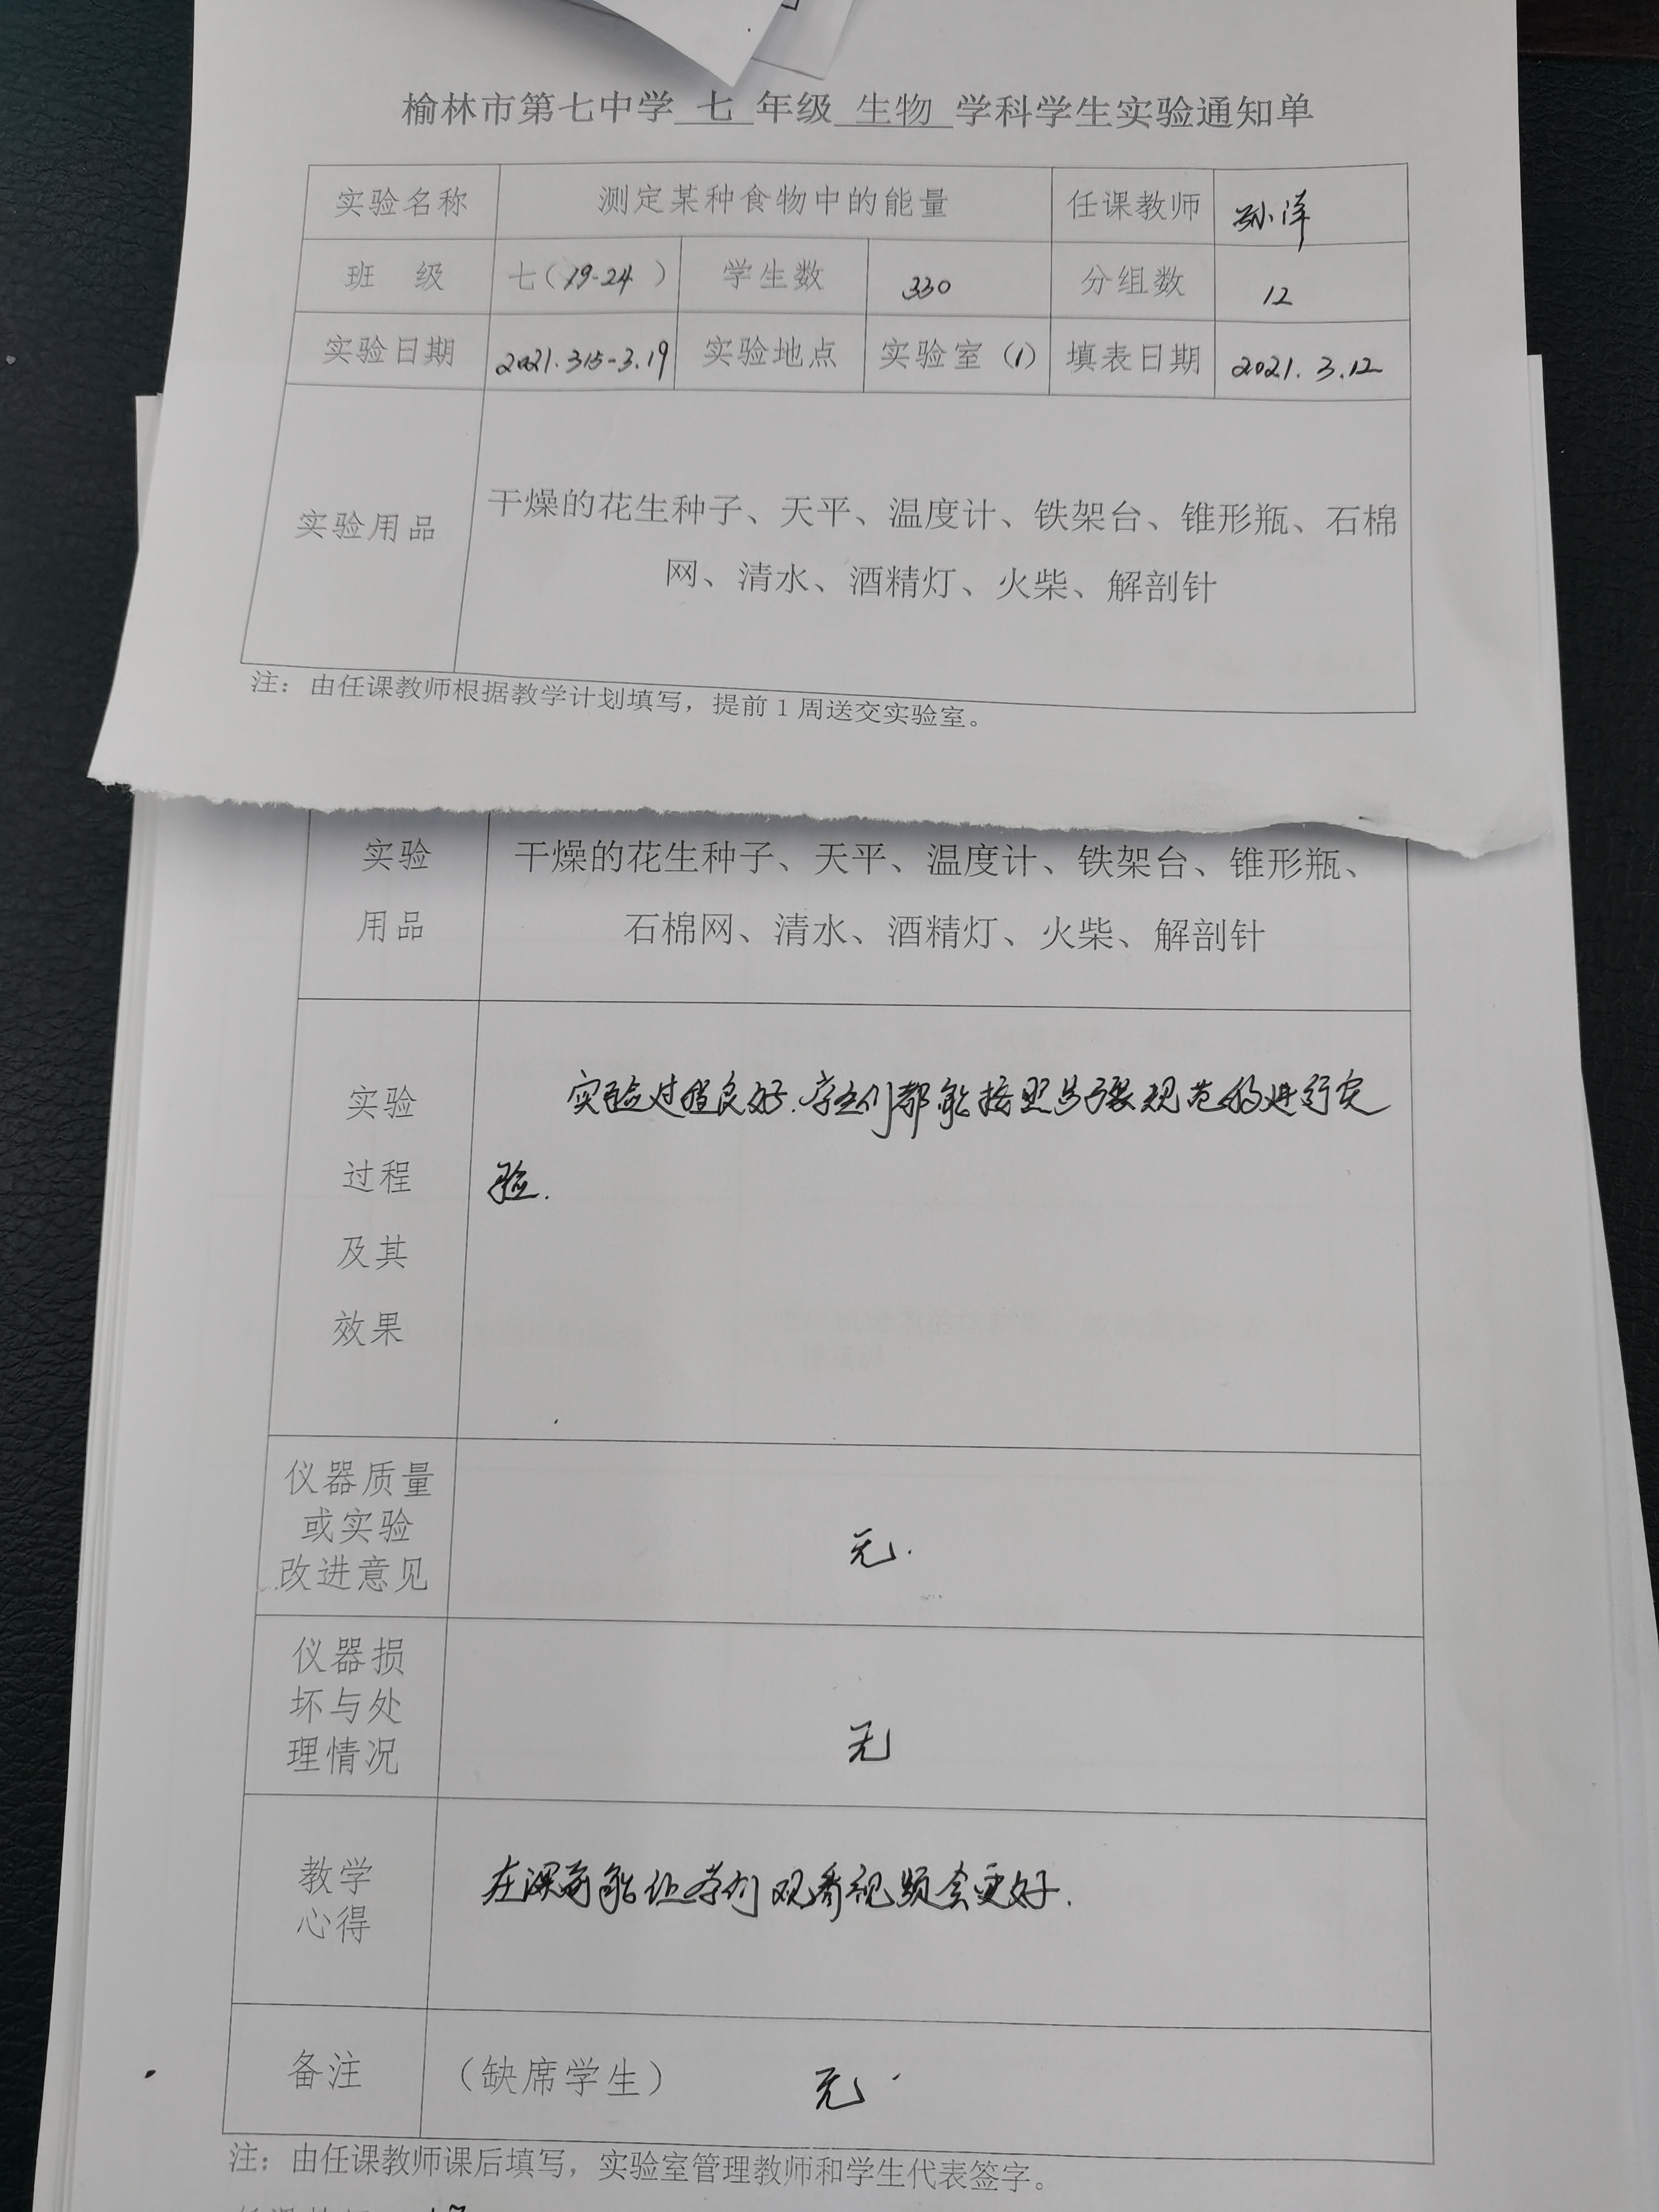 榆林市第七中学 七 年级 生物 学科学生实验通知单
实验名称 测定某种食物中的能量 任课教师 孙洋
班 级 七(19-24) 学生数 330 分组数 12
实验日期 2021.3.15-3.19 实验地点 实验室(1) 填表日期 2021.3.12
干燥的花生种子、天平、温度计、铁架台、锥形瓶、石棉
实验用品
网、清水、酒精灯、火柴、解剖针
注：由任课教师根据教学计划填写，提前1周送交实验室。
实验 干燥的花生种子、天平、温度计、铁架台、锥形瓶、
用品 石棉网、清水、酒精灯、火柴、解剖针
实验 实验过程良好.学生们都能按照步骤规范的进行实
过程 验.
及其
效果
仪器质量
或实验 无.
改进意见
仪器损
坏与处 无
理情况
教学 在课前能让学生们观看视频会更好.
心得
备注 (缺席学生) 无.
注：由任课教师课后填写，实验室管理教师和学生代表签字。